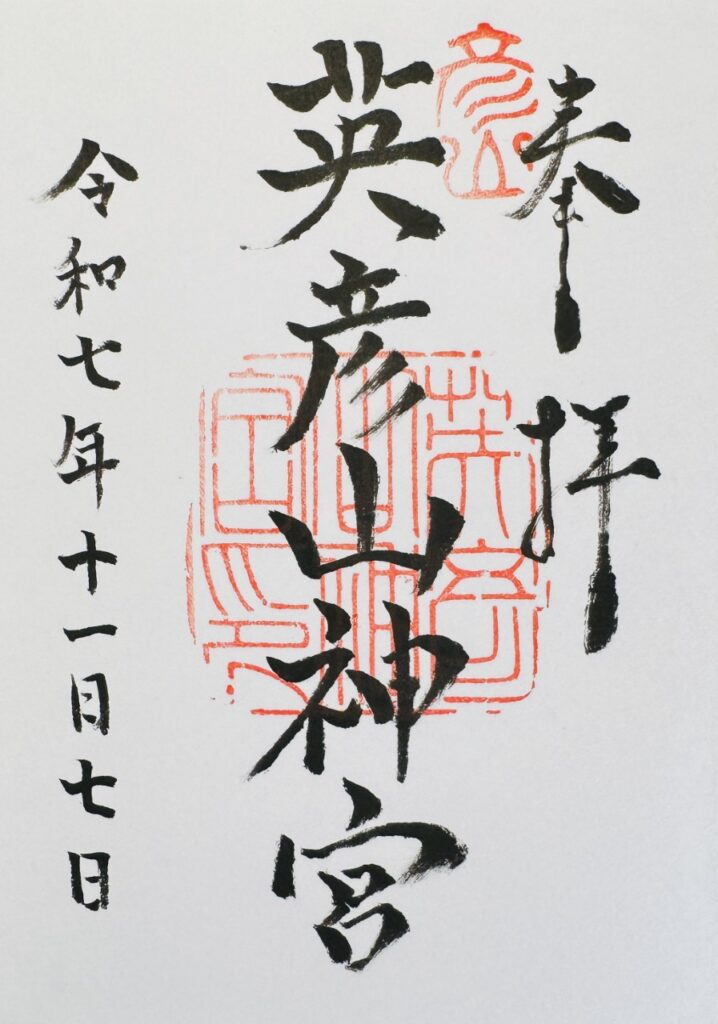 奉拝
英彦山神宮
令和七年十一月七日